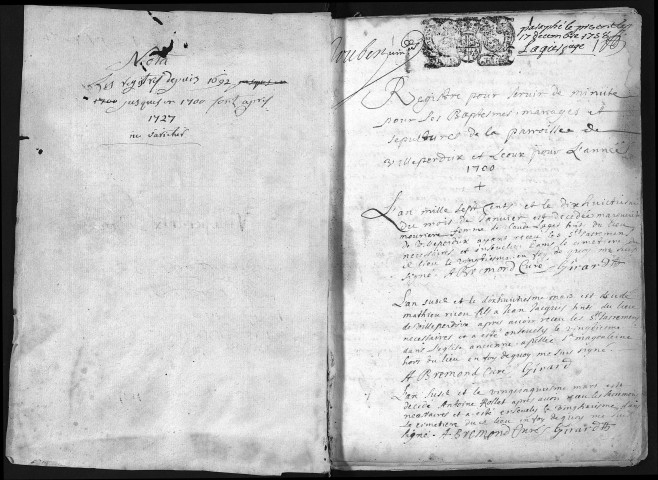 Nota
les registres depuis 1692
1700 jusques en 1700 sont apres
1727
paraphé le present
17 decembre 1758
Registre pour servir de minute
pour les Baptesmes, mariages et
sepultures de la parroisse de
Villeperdux et Leoux pour l'année
1700
L'an mille sept Cent et le dixhuictiesme
du mois de Janvier est decedée
femme de Claude Lages du lieu
de villeperdux ayant receu les Sts sacremens
necessaires et ensevelie dans le cimetiere
lieu le vingtiesme en foy de quoy me suis
signé. A Bremond Curé Girard
L'an susd et le dixhuictiesme mars est decedé
mathieu fils a Jean Jacques du lieu
de villeperdrix apres avoir receu les Sts sacremens
necessaires et a esté ensevely le vingtiesme
dans l'eglise ancienne apellée Ste magdeleine
hors du lieu en foy de quoy me suis signé
A Bremond Curé Girard
L'an susd et le vingcinquiesme mars est
decedé Antoine Rollet apres avoir receu les sacremens
necessaires et a esté ensevely le dans
le cimetiere dud lieu en foy de quoy me suis
signé. A Bremond Curé Girard